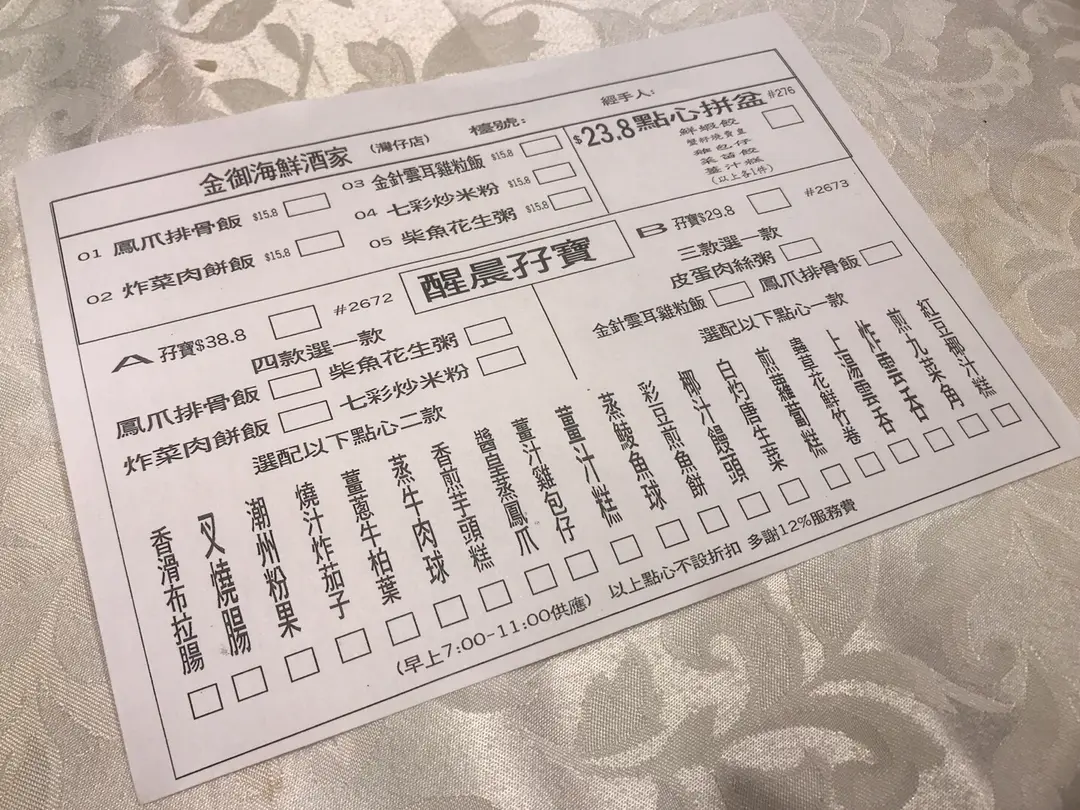 金御海鮮酒家 (灣仔店) 檯號: 經手人:
01 鳳爪排骨飯 $15.8
02 炸菜肉餅飯 $15.8
03 金針雲耳雞粒飯 $15.8
04 七彩炒米粉 $15.8
05 柴魚花生粥 $15.8
$23.8點心拼盆 #276
鮮蝦餃
蟹籽燒賣皇
雞包仔
菜苗餃
薑汁糕
(以上各1件)
醒晨孖寶
A 孖寶$38.8 #2672
四款選一款
鳳爪排骨飯 柴魚花生粥
炸菜肉餅飯 七彩炒米粉
選配以下點心二款
B 孖寶$29.8 #2673
三款選一款
皮蛋肉絲粥
金針雲耳雞粒飯 鳳爪排骨飯
選配以下點心一款
香滑布拉腸
叉燒腸
潮州粉果
燒汁炸茄子
薑蔥牛柏葉
蒸牛肉球
香煎芋頭糕
醬皇蒸鳳爪
薑汁雞包仔
薑汁糕
蒸鯪魚球
彩豆煎魚餅
椰汁饅頭
白灼唐生菜
煎蘿蔔糕
蟲草花鮮竹卷
上湯雲吞
炸雲吞
煎九菜角
紅豆椰汁糕
(早上7:00-11:00供應) 以上點心不設折扣 多謝12%服務費